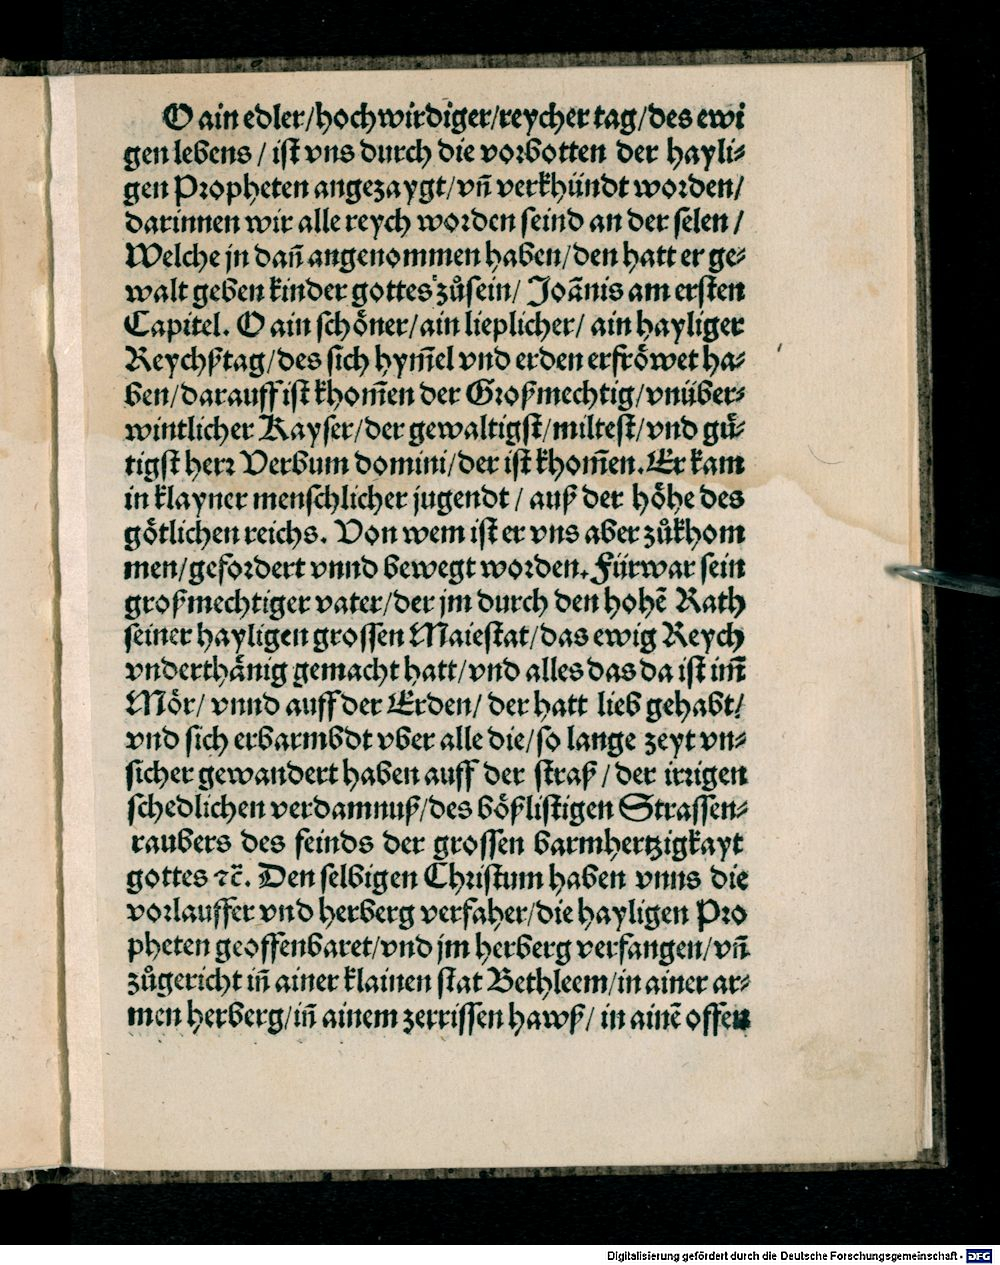 O ain edler/hochwirdiger/reycher tag/des ewi
gen lebens / ist vns durch die vorbotten der hayli⸗
gen Propheten angezaygt/vñ verkhündt worden/
darinnen wir alle reych worden seind an der selen /
Welche jn dañ angenommen haben/den hatt er ge⸗
walt geben kinder gottes zůsein/ Joãnis am ersten
Capitel. O ain schöner/ain lieplicher/ ain hayliger
Reychßtag/des sich hym̃el vnd erden erfröwet ha⸗
ben/darauff ist khom̃en der Großmechtig/vnüber⸗
wintlicher Kayser/der gewaltigst/miltest/vnd gü⸗
tigst herr Verbum domini/der ist khom̃en. Er kam
in klayner menschlicher jugendt / auß der höhe des
götlichen reichs. Von wem ist er vns aber zůkhom
men/gefordert vnnd bewegt worden. Fürwar sein
großmechtiger vater/der jm durch den hohẽ Rath
seiner hayligen grossen Maiestat/das ewig Reych
vnderthänig gemacht hatt/vnd alles das da ist im̃
Mör/ vnnd auff der Erden/ der hatt lieb gehabt/
vnd sich erbarmbdt vber alle die/so lange zeyt vn⸗
sicher gewandert haben auff der straß / der irrigen
schedlichen verdamnuß/des bößlistigen Strassen⸗
raubers des feinds der grossen barmhertzigkayt
gottes ⁊c̃. Den selbigen Christum haben vnns die
vorlauffer vnd herberg verfaher/die hayligen Pro
pheten geoffenbaret/vnd jm herberg verfangen/vñ
zůgericht iñ ainer klainen stat Bethleem/in ainer ar⸗
men herberg/iñ ainem zerrissen hawß/ in ainẽ offen
Digitalisierung gefördert durch die Deutsche Forschungsgemeinschaft - DFG